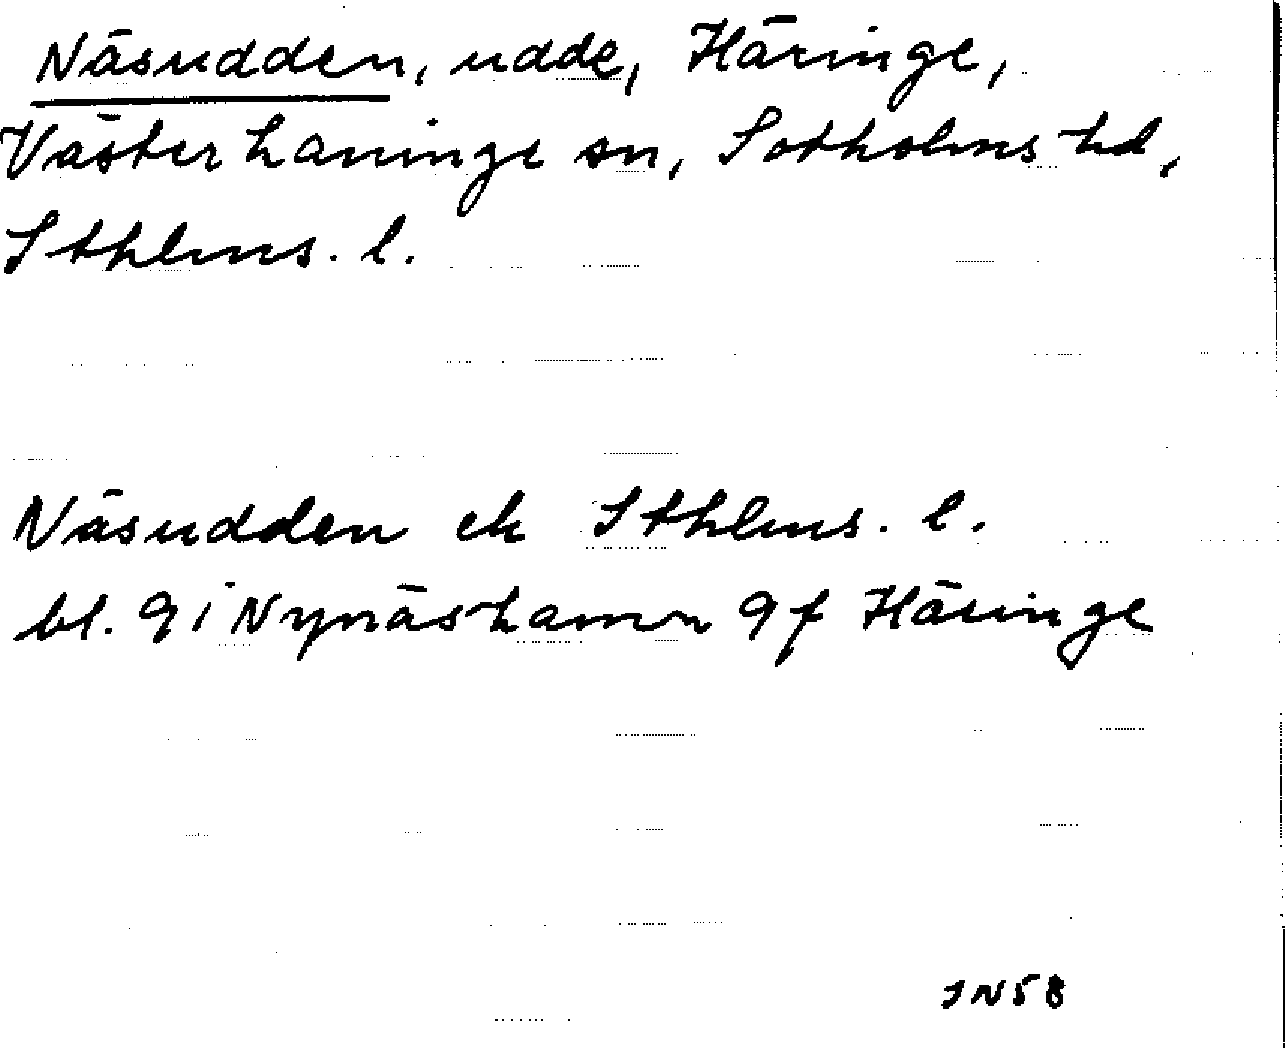 Näsudden, udde, Häringe,
Västerhaninge sn, Sotholms hd,
Sthlms. l.
Näsudden ek Sthlms. l.
bl. 9i Nynäshamn 9f Häringe
JN58